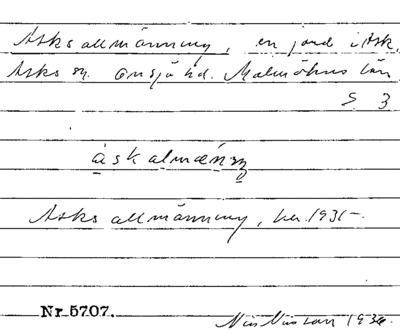 Asks allmänning, en jord i Ask,
Asks sn. Onsjö hd. Malmöhus län
S 3
ask almæniŋ
Asks allmänning, ber. 1931-.
Nr 5707.
Nils Nilsson 1934